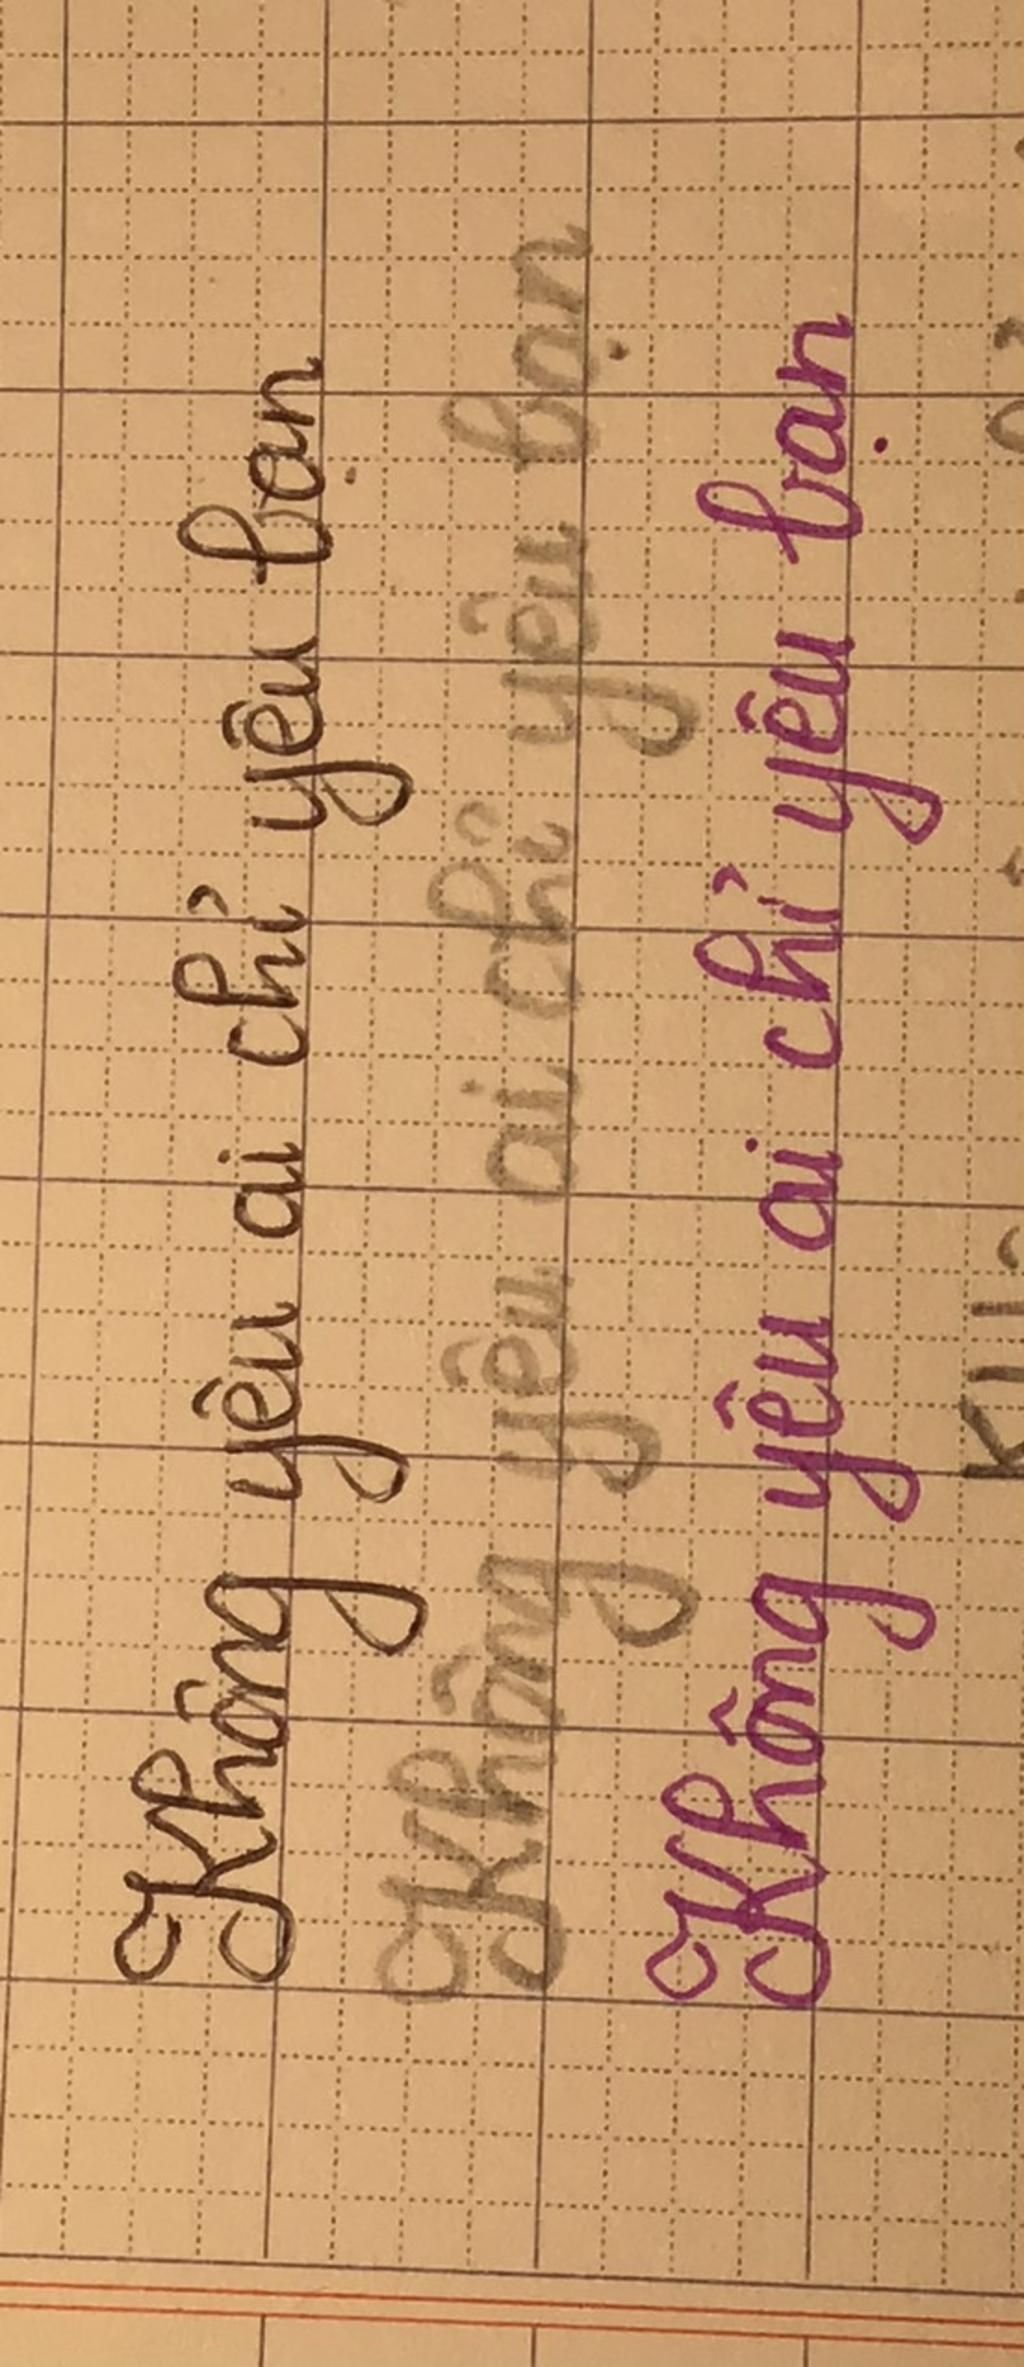 Không yêu ai chỉ yêu bạn
Không yêu ai chỉ yêu bạn
Không yêu ai chỉ yêu bạn